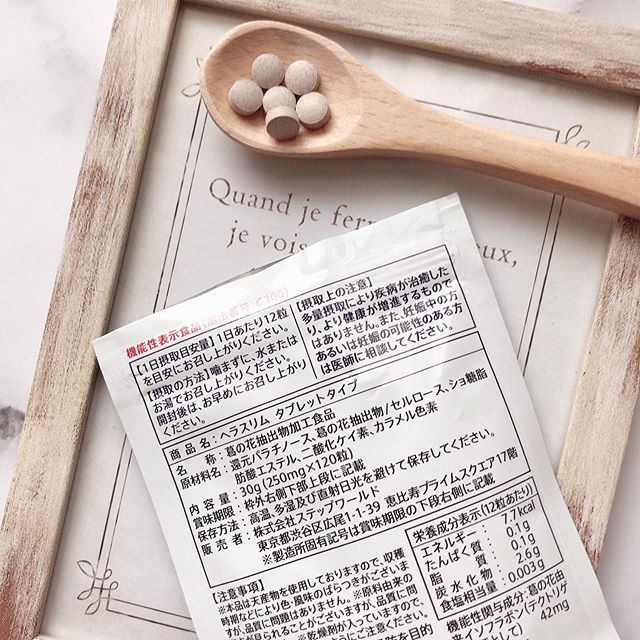 Quand je fer
je vois
eux,
機能性表示食品(届出番号:C300)
【1日摂取目安量】1日あたり12粒
を目安にお召し上がりください。
【摂取の方法】噛まずに、水または
お湯でお召し上がりください。
開封後は、お早めにお召し上がり
ください。
【摂取上の注意】
多量摂取により疾病が治癒した
り、より健康が増進するもので
はありません。また、妊娠中の方
あるいは妊娠の可能性のある方
は医師に相談してください。
商品名:ヘラスリム タブレットタイプ
名称:葛の花抽出物加工食品
原材料名:還元パラチノース、葛の花抽出物/セルロース、ショ糖脂
肪酸エステル、二酸化ケイ素、カラメル色素
内容量:30g(250mg×120粒)
賞味期限:枠外右側下部上段に記載
保存方法:高温、多湿及び直射日光を避けて保存してください。
販売者:株式会社ステップワールド
東京都渋谷区広尾1-1-39 恵比寿プライムスクエア17階
※製造所固有記号は賞味期限の下段右側に記載
【注意事項】
※本品は天産物を使用しておりますので、収穫
時期などにより色・風味のばらつきがございま
すが、品質に問題はありません。※原料由来の
が見られることがございますが、品質に問
※乾燥剤が入っていますので、
栄養成分表示(12粒あたり)
エネルギー:7.7kcal
たんぱく質:0.1g
脂質:0.1g
炭水化物:2.6g
食塩相当量:0.003g
機能性関与成分:葛の花由
イソフラボン(テクトリゲ
42mg